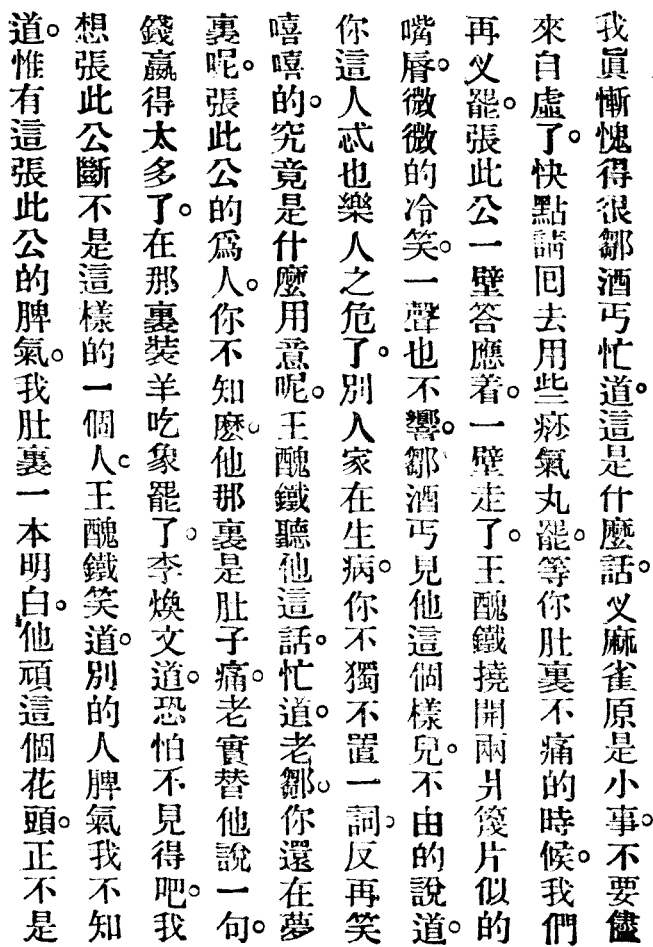 我眞慚愧得很鄒酒丐忙道。這是什麼話。叉麻雀原是小事。不要儘
來白虛了。快點請囘去用些痧氣丸罷。等你肚裏不痛的時候。我們
再叉罷。張此公一壁答應着。一壁走了。王醜鐵撓開兩爿篾片似的
嘴脣。微微的冷笑。一聲也不響。鄒酒丐見他這個樣兒。不由的說道。
你這人忒也樂人之危了。別人家在生病。你不獨不置一詞。反再笑
嘻嘻的。究竟是什麼用意呢。王醜鐵聽他這話。忙道。老鄒。你還在夢
裏呢。張此公的爲人。你不知麼。他那裏是肚子痛。老實替他說一句。
錢贏得太多了。在那裏裝羊吃象罷了。李煥文道。恐怕不見得吧。我
想張此公斷不是這樣的一個人。王醜鐵笑道。別的人脾氣我不知
道。惟有這張此公的脾氣。我肚裏一本明白。他頑這個花頭。正不是